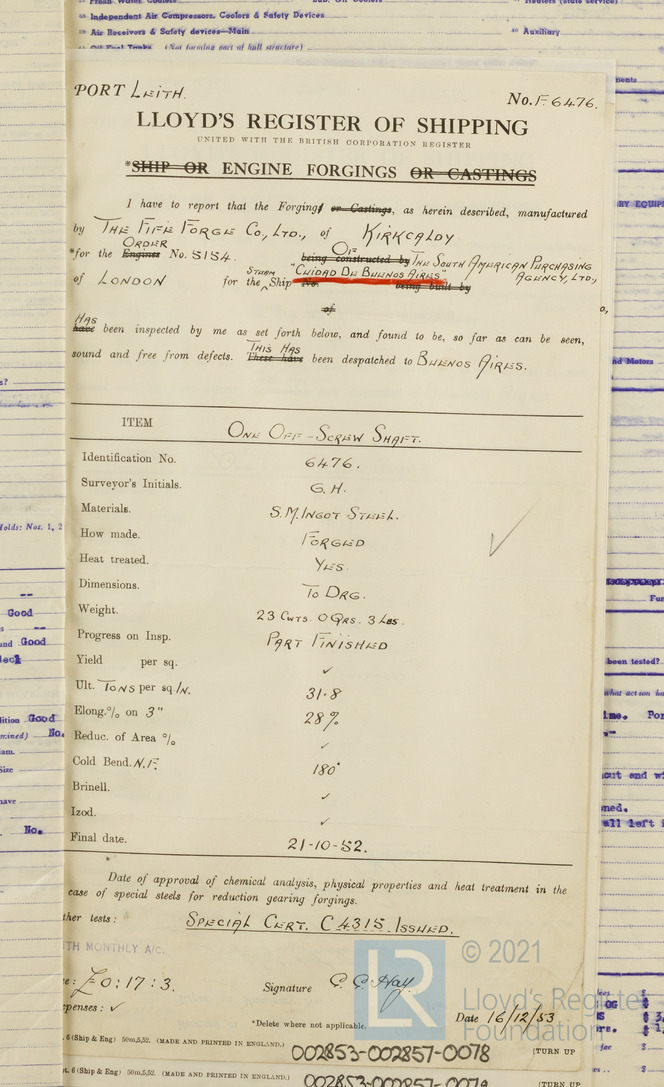 Independent Air Compressors, Coolers & Safety Devices
Air Receivers & Safety devices—Main
Auxiliary
Oil Fuel Tanks (Not forming part of hull structure)
PORT LEITH.
No. F.6476.
LLOYD'S REGISTER OF SHIPPING
UNITED WITH THE BRITISH CORPORATION REGISTER
*SHIP OR ENGINE FORGINGS OR CASTINGS
I have to report that the Forging or Castings, as herein described, manufactured
by THE FIFE FORGE CO., LTD., of KIRKCALDY
ORDER OF
*for the Engines No. 5154. being constructed by THE SOUTH AMERICAN PURCHASING
of LONDON for the STEAM Ship No. "CUIDAD DE BUENOS AIRES" being built by AGENCY, LTD.,
of
HAS
have been inspected by me as set forth below, and found to be, so far as can be seen,
THIS HAS
sound and free from defects. These have been despatched to BUENOS AIRES.
ITEM ONE OFF - SCREW SHAFT.
Identification No. 6476.
Surveyor's Initials. G.H.
Materials. S.M. INGOT STEEL.
How made. FORGED
Heat treated. YES.
Dimensions. TO DRG.
Weight. 23 CWTS. 0 QRS. 3 LBS.
Progress on Insp. PART FINISHED
Yield per sq. ✓
Ult. TONS per sq IN. 31·8
Elong.% on 3" 28%
Reduc. of Area % ✓
Cold Bend. N.F. 180°
Brinell. ✓
Izod. ✓
Final date. 21-10-52.
Date of approval of chemical analysis, physical properties and heat treatment in the
case of special steels for reduction gearing forgings.
ther tests: SPECIAL CERT. C 4315 ISSUED.
TH MONTHLY A/C.
© 2021
e: £0:17:3.
Signature G. G. Hay.
LR
Lloyd's Register
Foundation
penses: ✓
Date 16/12/53
*Delete where not applicable.
. 6 (Ship & Eng) 50m,5,52. (MADE AND PRINTED IN ENGLAND.)
002853-002857-0078
[TURN UP
t. 6 (Ship & Eng) 50m,5,52. (MADE AND PRINTED IN ENGLAND.)
[TURN UP
s?
Holds: Nos. 1, 2
Good
nd Good
dition Good
mined) No.
am.
Size
have
No.
ments
nd Motors
been tested?
what action ha
ime. Por
ned.
all left i